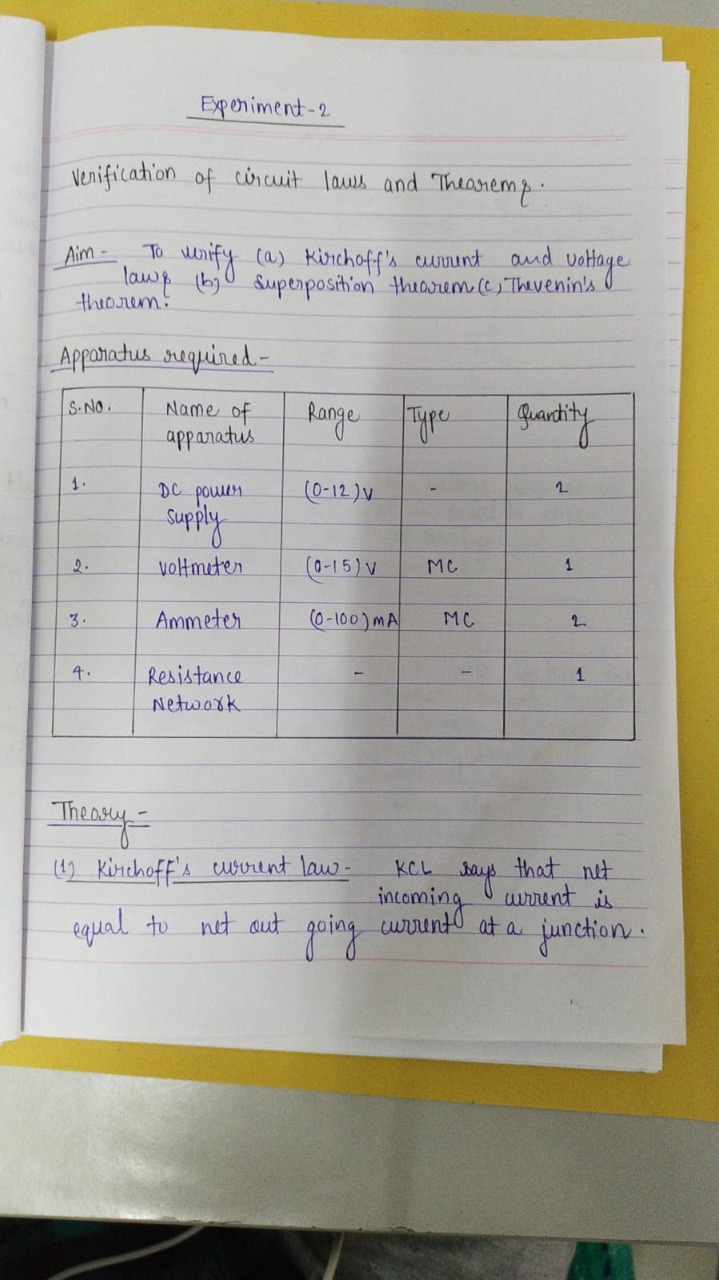 Experiment-2
Verification of circuit laws and Thearems.
Aim- To verify (a) Kirchoff's current and voltage
laws (b) Superposition thearem (c) Thevenin's
thearem.
Apparatus required-
S.NO. Name of apparatus Range Type Quantity
1. DC power supply (0-12)V - 2
2. voltmeter (0-15)V MC 1
3. Ammeter (0-100)mA MC 2
4. Resistance Network - - 1
Theory-
(1) Kirchoff's current law- KCL says that net
incoming current is
equal to net out going current at a junction.